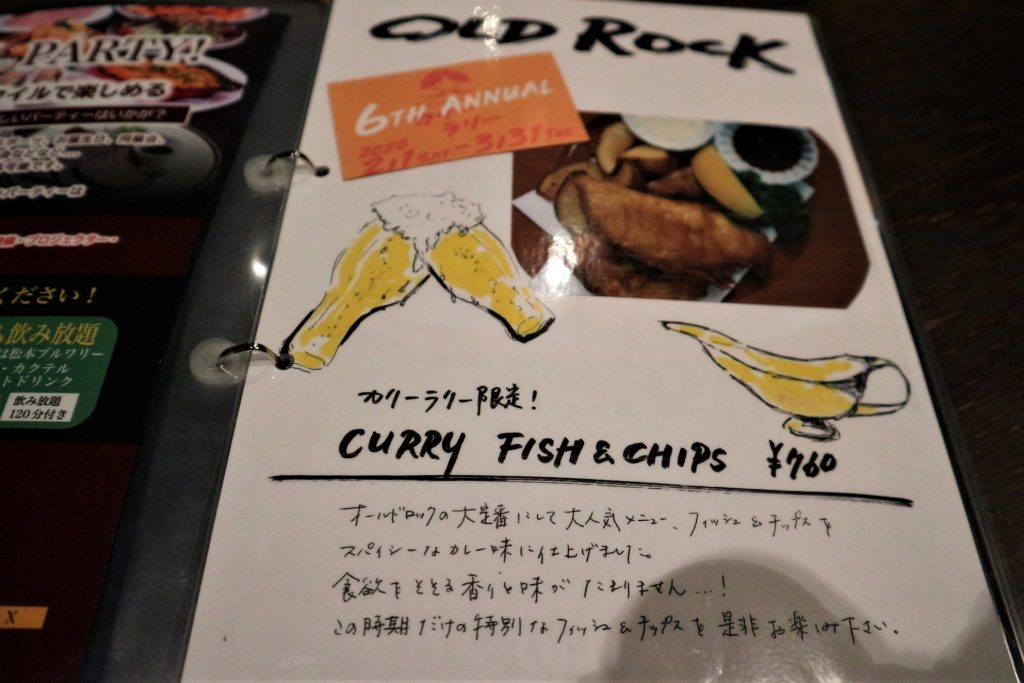 PARTY!
イルで楽しめる
しいパーティーはいかがですか?
パーティーは
プロジェクター・
ください!
飲み放題
は松本ブルワリー
・カクテル
トドリンク
飲み放題
120分付き
X
OLD ROCK
6TH ANNUAL
カリー
ラリー
2020
2/1 SAT - 3/31 TUE
カリーラリー限定!
CURRY FISH & CHIPS ¥760
オールドロックの大定番にして大人気メニュー、フィッシュ&チップスを
スパイシーなカレー味に仕上げました。
食欲をそそる香りと味がたまりません…!
この時期だけの特別なフィッシュ&チップスを是非お楽しみ下さい。